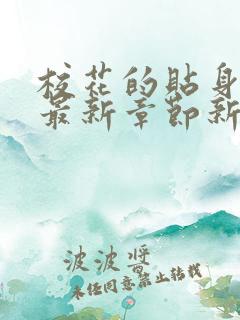 校花的贴身
最新章节新
波波酱
未经同意禁止转载